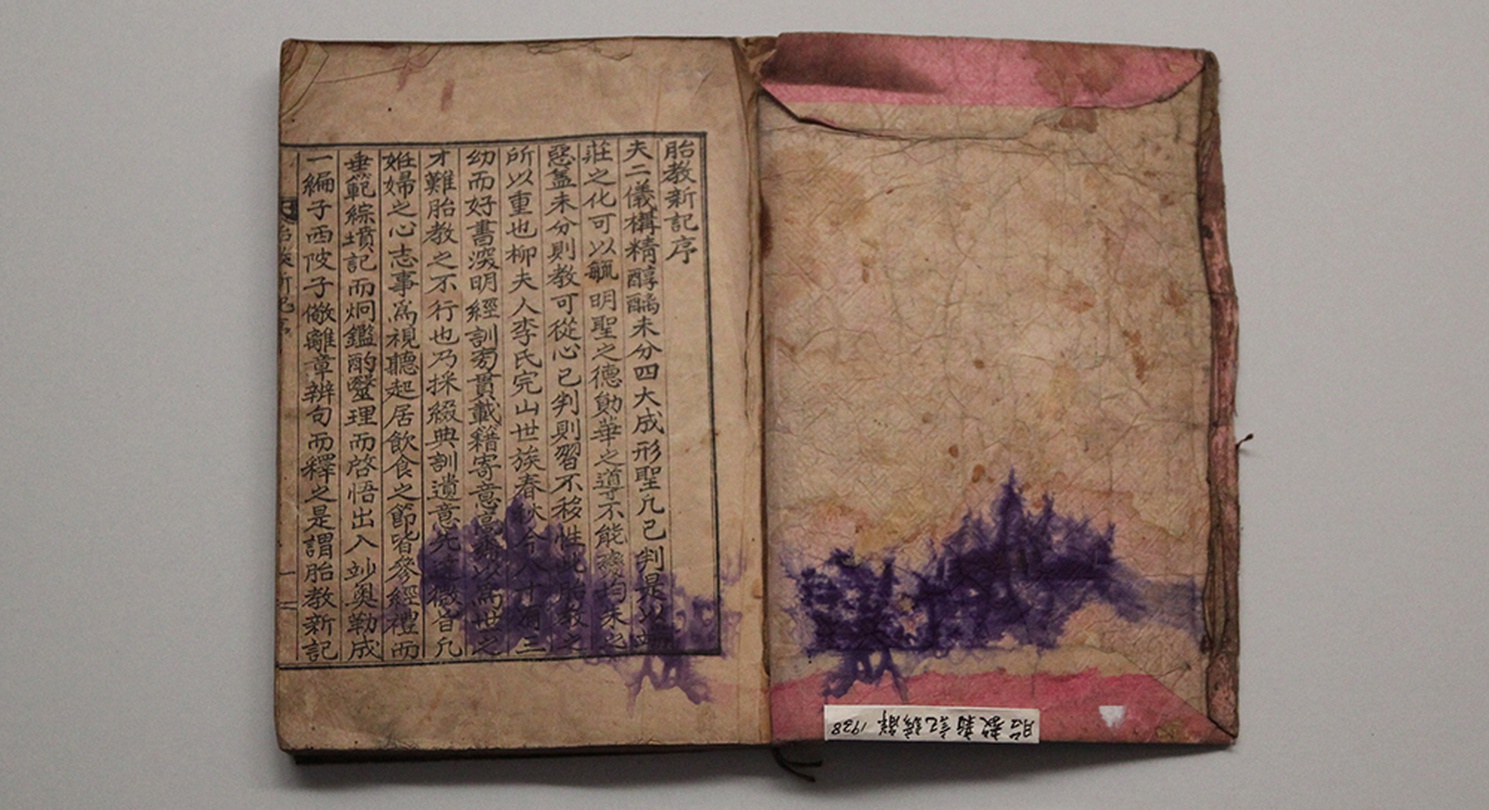 胎教新記序
夫二儀構精醇醨未分四大成形聖凡已判是以端
莊之化可以毓明聖之德勛華之導不能變均朱之
惡蓋未分則教可從心已判則習不移性此胎教之
所以重也柳夫人李氏完山世族春秋今八十有三
幼而好書深明經訓旁貫載籍寄意高以爲世之
才難胎教之不行也乃採綴典訓遺意先達微旨凡
姙婦之心志事爲視聽起居飲食之節皆參經禮而
垂範綜墳記而炯鑑酌毉理而啓悟出入竗奧勒成
一編子西陂子儆離章辨句而釋之是謂胎教新記
胎敎新記諺解 1938